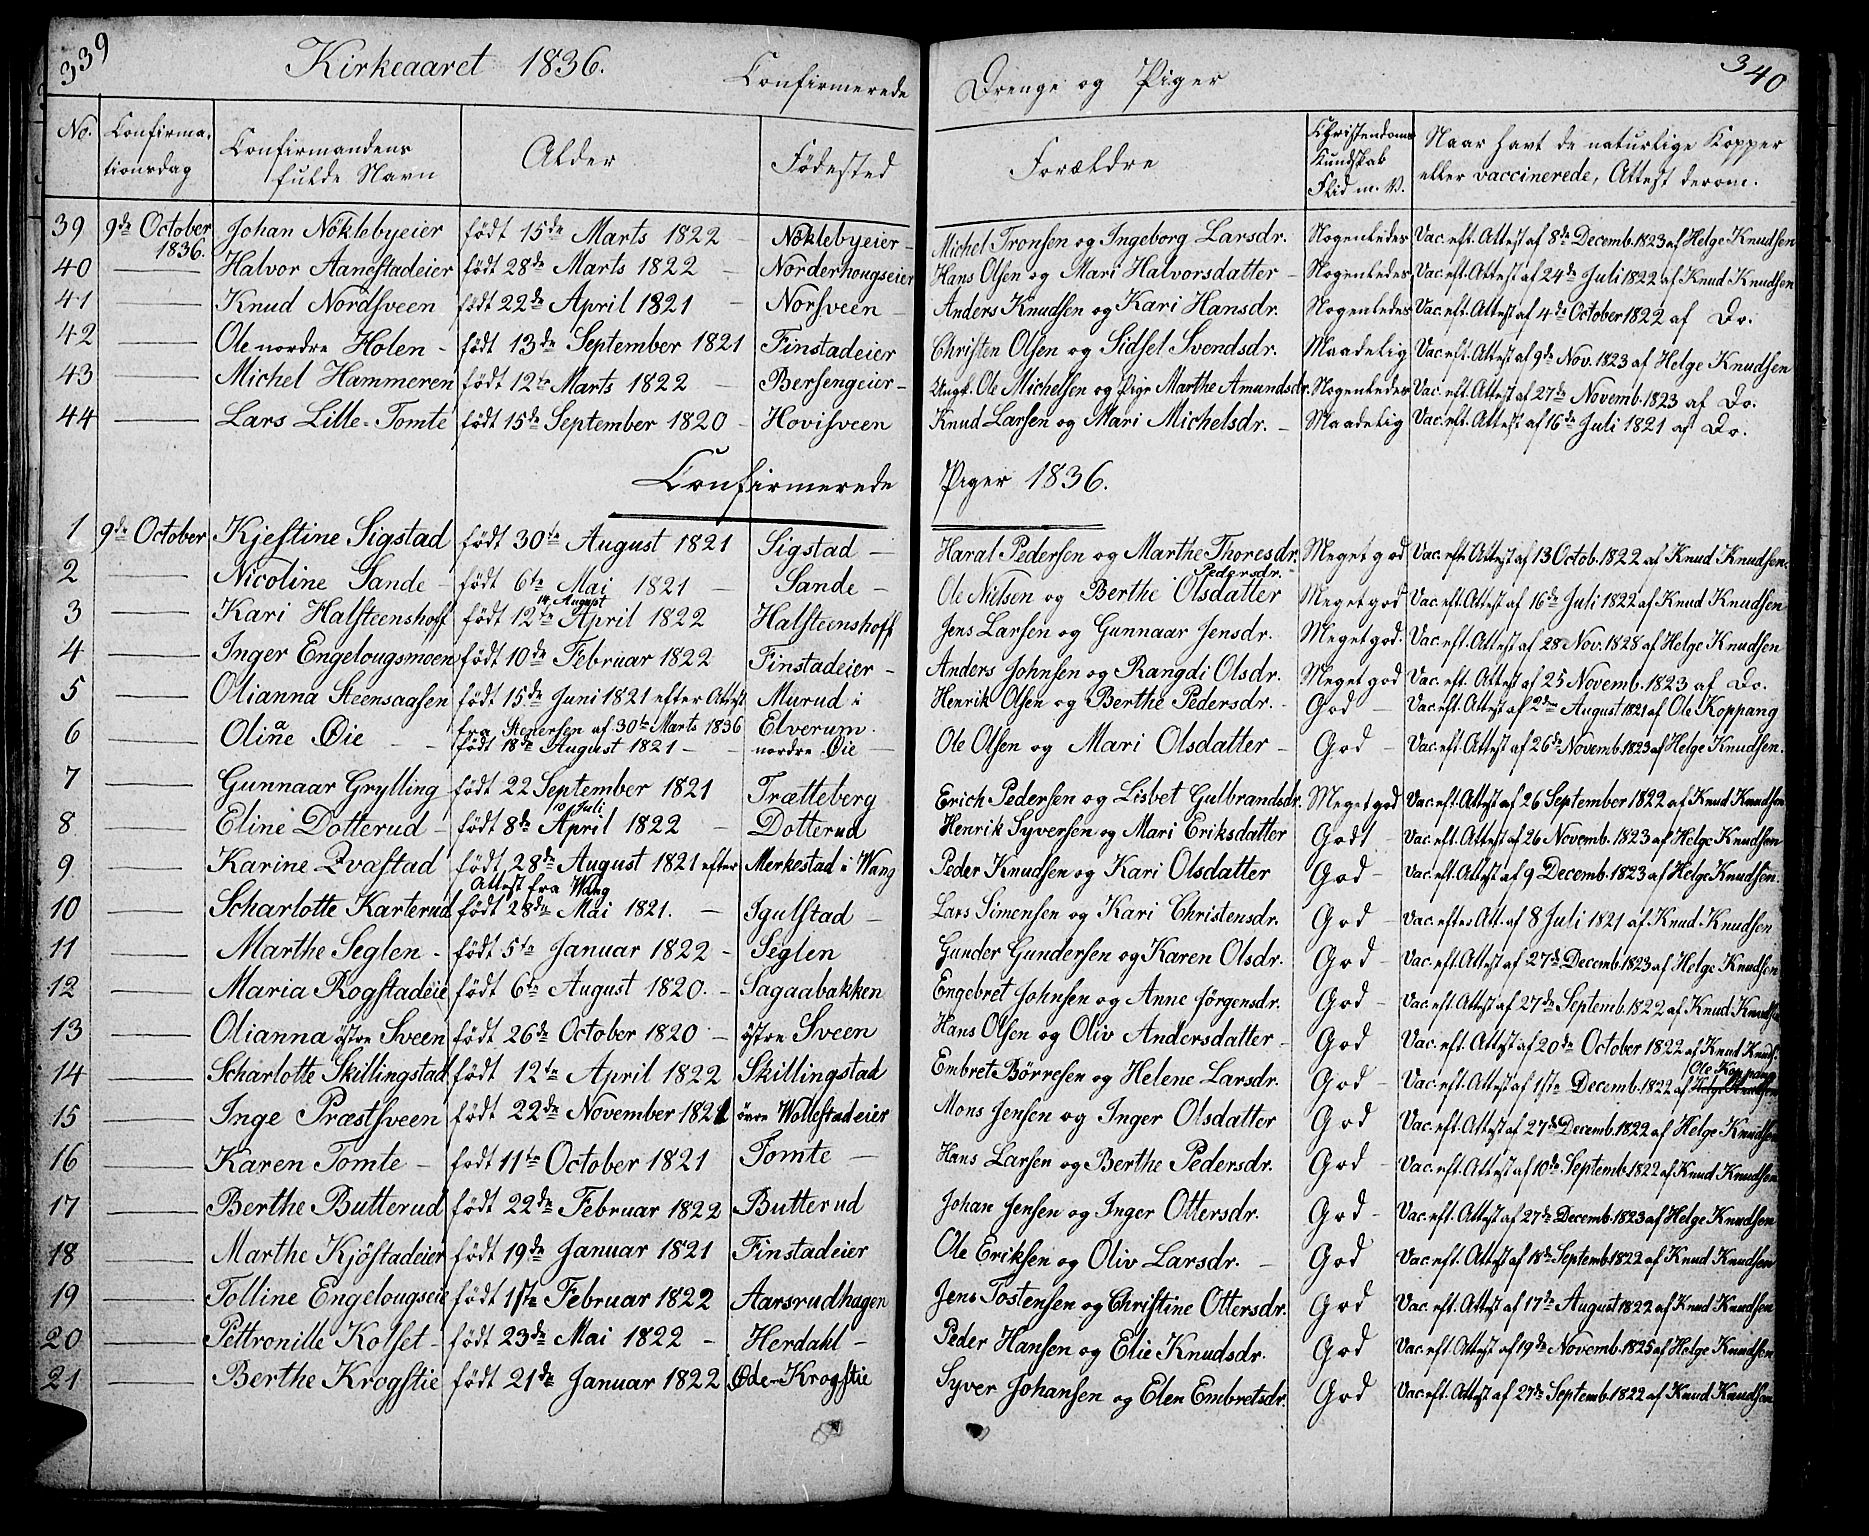 339
Kirkeaaret 1836.
Confirmerede
Drenge og Piger
340
No. Confirma-tionsdag Confirmandens fulde Navn Alder Födested Forældre Christendoms Kundskab Flid m. V. Naar havt de naturlige Kopper eller vaccinerede, Attest derom.
39 9de October 1836. Johan Nöklebyeier födt 15de Marts 1822 - Nöklebyeier - Michel Tronsen og Ingeborg Larsdr. Nogenledes Vac. eft. Attest af 8de Decemb. 1823 af Helge Knudsen
40 Halvor Aanestadeier födt 28de Marts 1822 - Norderhougseier Hans Olsen og Mari Halvorsdatter - Nogenledes Vac. eft. Attest af 24de Juli 1822 af Knud Knudsen
41 Knud Nordsveen födt 22de April 1821 - Norsveen - Anders Knudsen og Kari Hansdr. Nogenledes Vac. eft. Attest af 4de October 1822 af Do.
42 Ole nordre Holen - födt 13de September 1821 Finstadeier Christen Olsen og Sidsel Svendsdr. Maadelig Vac. eft. Attest af 9de Nov. 1823 af Helge Knudsen
43 Michel Hammeren födt 12te Marts 1822 - Bersengeier - Ungk. Ole Michelsen og Pige Marthe Amundsdr. Nogenledes Vac. eft. Attest af 27de Novemb. 1823 af Do.
44 Lars Lille-Tomte födt 15de September 1820 - Hovisveen Knud Larsen og Mari Michelsdr. - Maadelig Vac. eft. Attest af 16de Juli 1821 af Do.
Confirmerede Piger 1836.
1 9de October Kjestine Sigstad födt 30te August 1821 Sigstad - Haral Pedersen og Marthe Thoresdr. Meget god Vac. eft. Attest af 13 Octob. 1822 af Knud Knudsen.
Pedersdr.
2 Nicoline Sande - födt 6te Mai 1821 - Sande - Ole Nielsen og Berthe Olsdatter Meget god Vac. eft. Attest af 16de Juli 1822 af Knud Knudsen
14 August
3 Kari Halsteenshoff födt 12te April 1822 Halsteenshoff Jens Larsen og Gunnaar Jensdr. Meget god. Vac. eft. Attest af 28 Nov. 1828 af Helge Knudsen
4 Inger Engelougsmoen födt 10de Februar 1822 Finstadeier - Anders Johnsen og Rangdi Olsdr. Meget god Vac. eft. Attest af 25 Novemb. 1823 af Do.
5 Olianna Steensaasen födt 15de Juni 1821 efter Attest fra Stenersen af 30te Marts 1836 Murud i Elverum. Henrik Olsen og Berthe Pedersdr. - God - Vac. eft. Attest af 2den August 1821 af Ole Koppang
a
6 Oline Øie - - födt 18de August 1821 - nordre Øie - Ole Olsen og Mari Olsdatter - God - Vac. eft. Attest af 26de Novemb. 1823 af Helge Knudsen.
7 Gunnaar Grylling födt 22 September 1821 Trætteberg Erich Pedersen og Lisbet Gulbrandsdr. Meget god Vac. eft. Attest af 26 September 1822 af Knud Knudsen
10 Juli
8 Eline Dotterud - födt 8de April 1822 - Dotterud Henrik Syversen og Mari Eriksdatter Godt - Vac. eft. Attest af 26 Novemb. 1823 af Helge Knudsen
9 Karine Qvastad födt 28de August 1821 efter Attest fra Wang Merkestad i Wang Peder Knudsen og Kari Olsdatter God - Vac. eft. Attest af 9 Decemb. 1823 af Helge Knudsen.
10 Scharlotte Karterud födt 28de Mai 1821. - Igulstad - Lars Simensen og Kari Christensdr. God - Vac. eftes Att. af 8 Juli 1821 af Knud Knudsen
11 Marthe Seglen - födt 5te Januar 1822 - Seglen Gunder Gundersen og Karen Olsdr. God - Vac. eft. Attest af 27de Decemb. 1823 af Helge Knudsen
12 Maria Rogstadeie födt 6te August 1820. - Sagaabakken Engebret Johnsen og Anne Jörgensdr. God - Vac. eft. Attest af 27de Septemb. 1822 af Knud Knudse
13 Olianna östre Sveen födt 26de October 1820 - östre Sveen Hans Olsen og Oliv Andersdatter - God Vac. eft. Attest af 20de October 1822 af Knud Knuds.
Ole Koppang
14 Scharlotte Skillingstad födt 12te April 1822 Skillingstad Embret Börresen og Helene Larsdr. God - Vac. eft. Attest af 1ste Decemb. 1822 af Helge Knudsen
15 Inge Præstsveen födt 22de November 1821 övre Wollestadeier Mons Jensen og Inger Olsdatter God Vac. eft. Attest af 27de Decemb. 1822 af Helge Knudsen
16 Karen Tomte - födt 11te October 1821 Tomte - Hans Larsen og Berthe Pedersdr. God - Vac. eft. Attest af 10de Septemb. 1822 af Knud Knudsen
17 Berthe Butterud födt 22de Februar 1822 Butterud Johan Jensen og Inger Ottersdr. God - Vac. eft. Attest af 27de Decemb. 1823 af Helge Knudsen
18 Marthe Kjöstadeier födt 19de Januar 1821 Finstadeier Ole Eriksen og Oliv Larsdr. - God Vac. eft. Attest af 18de Septemb 1822 af Knud Knudsen
19 Tolline Engelougseie födt 1ste Februar 1822 Aarsrudhagen Jens Tostensen og Christine Ottersdr. God Vac. eft. Attest af 17de August 1822 af Knud Knudsen
20 Pettronille Kolset - födt 23de Mai 1822 - Herdahl - Peder Hansen og Elie Knudsdr. God Vac. eft. Attest af 19de Novemb. 1825 af Helge Knudsen
21 Berthe Krogstie födt 21de Januar 1822 Øde-Krogstie Syver Johansen og Elen Embretsdr. God Vac. eft. Attest af 27de Septemb. 1822 af Knud Knudsen